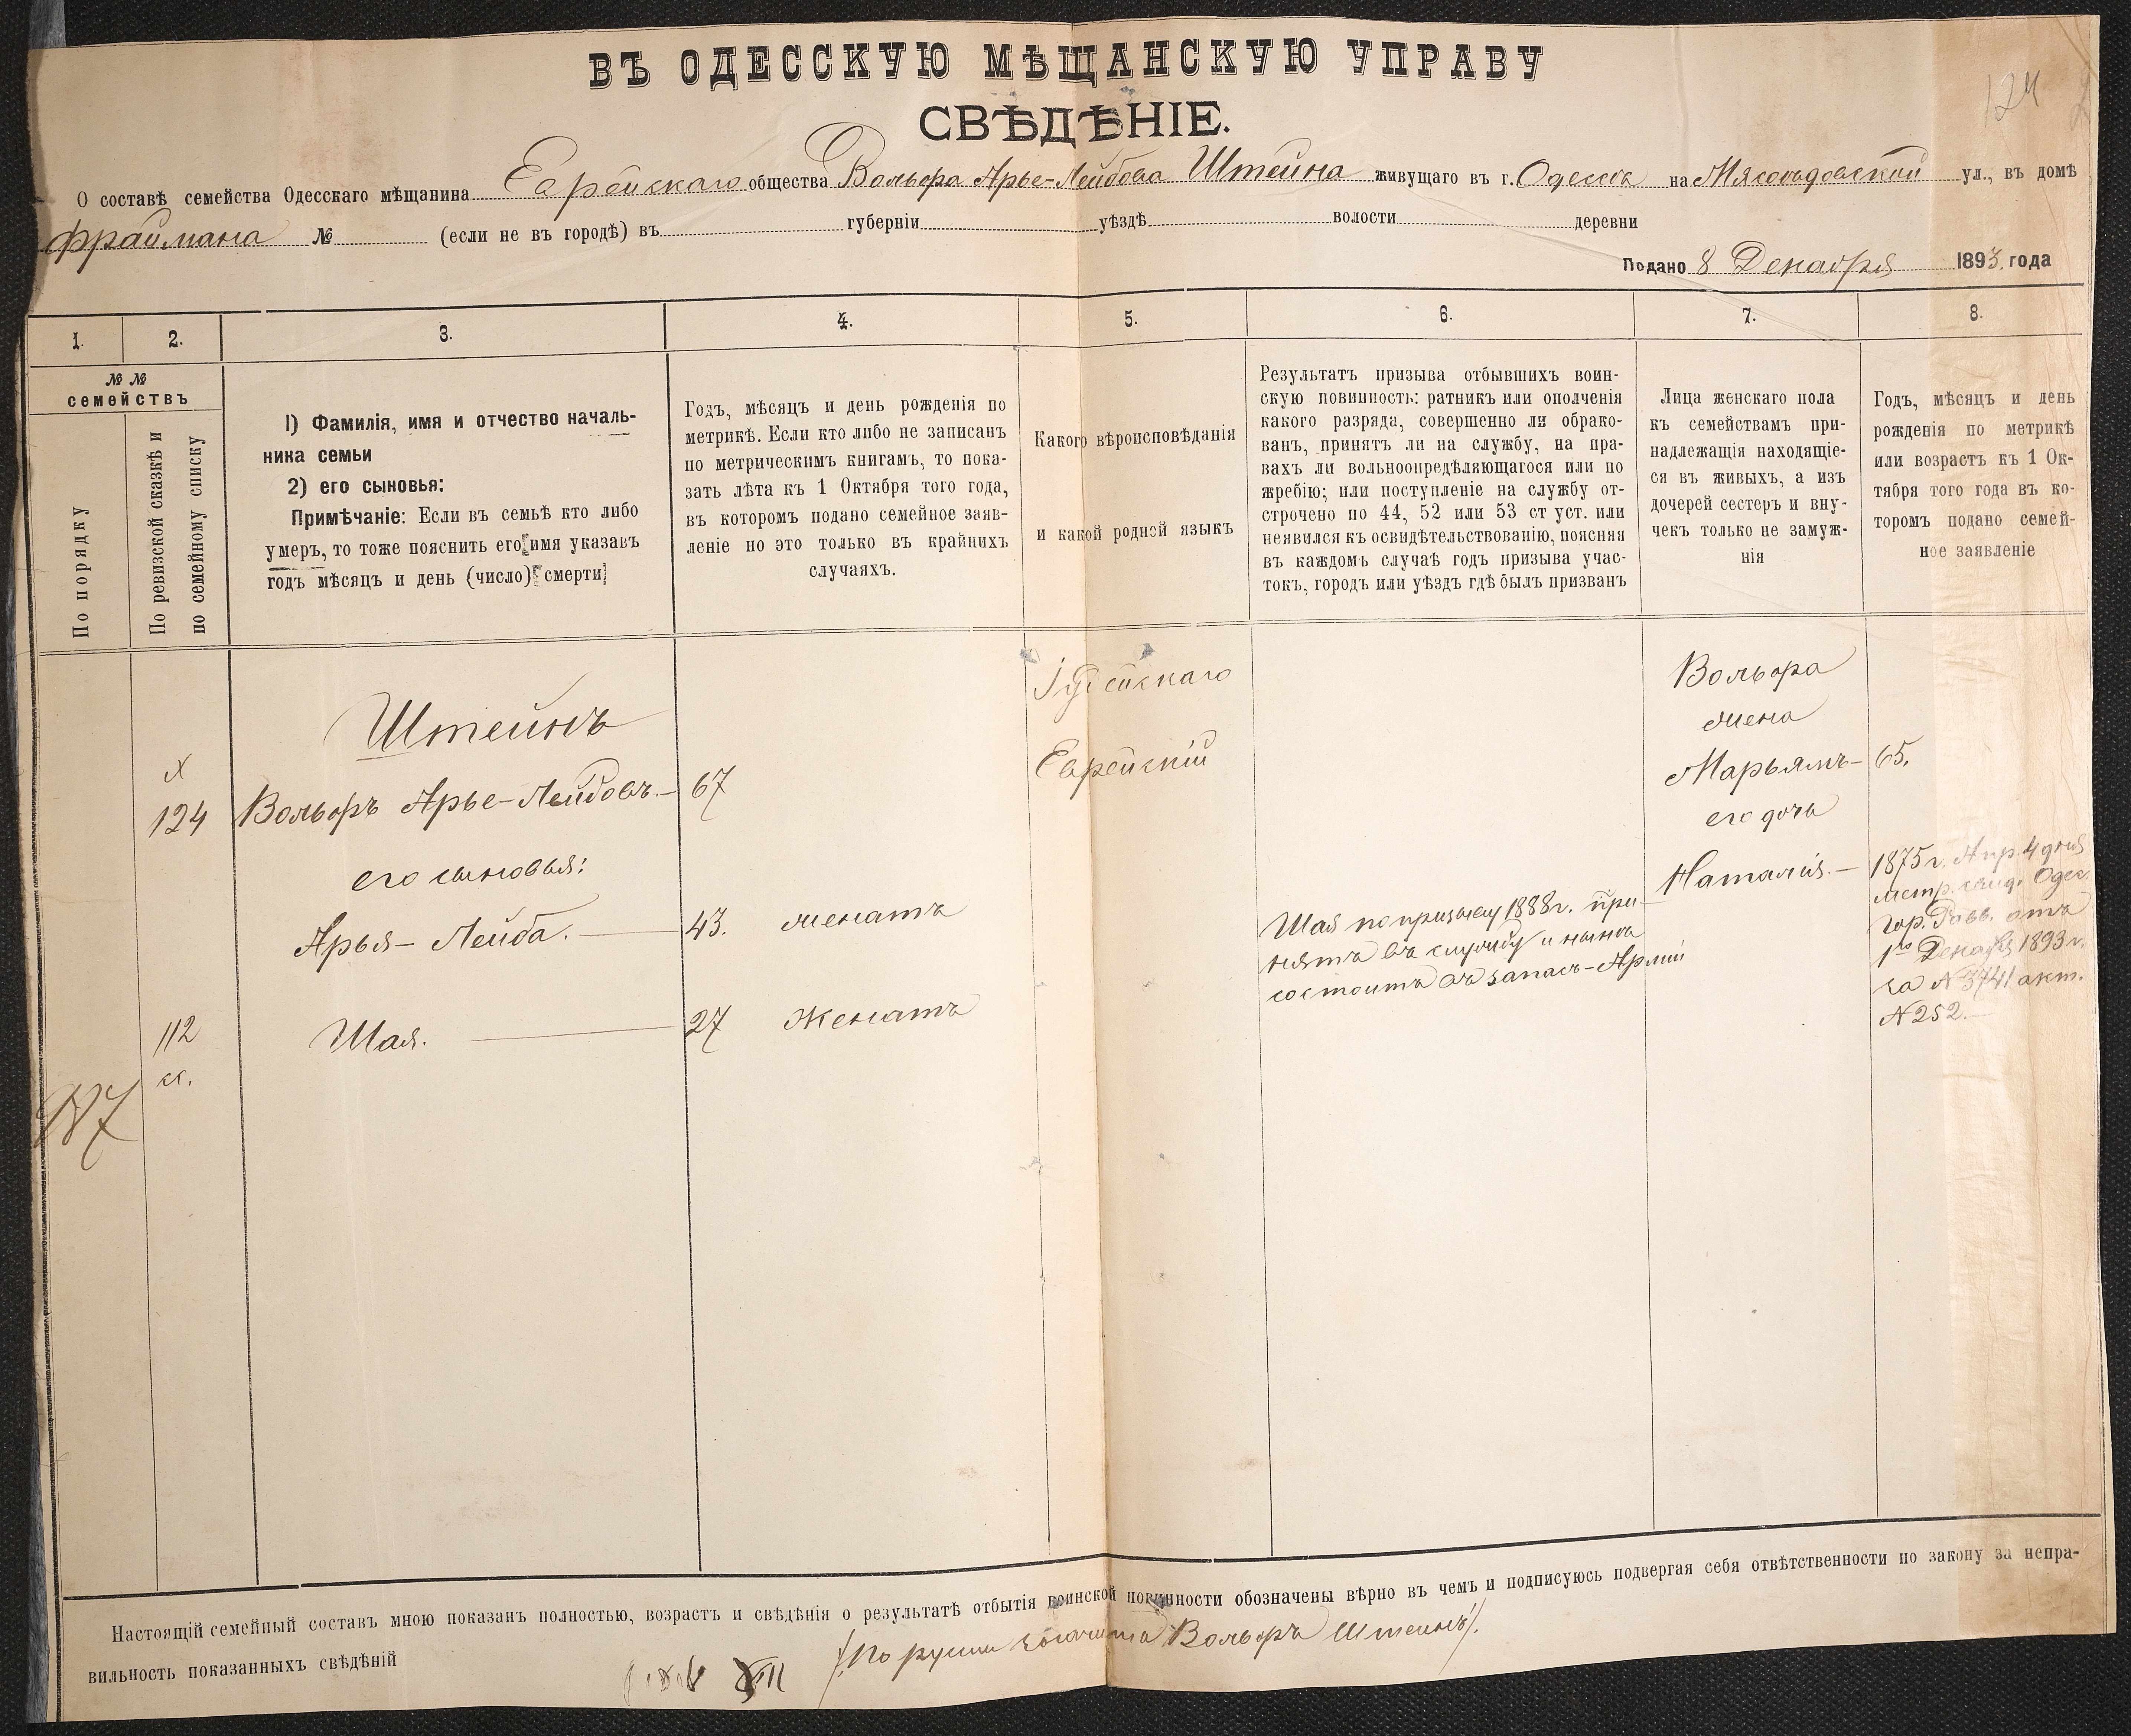 ВЪ ОДЕССКУЮ МѢЩАНСКУЮ УПРАВУ
СВѢДѢНІЕ.
124
О составѣ семейства Одесскаго мѣщанина Еврейскаго общества Вольфа Арье-Лейбова Штейна живущаго въ г. Одессѣ на Мясоѣдовской ул., въ домѣ
Фраймана № (если не въ городѣ) въ губерніи уѣздѣ волости деревни
Подано 8 Декабря 1893 года
1. 2. 3. 4. 5. 6. 7. 8.
№ №
семействъ
По порядку
По ревизской сказкѣ и
по семейному списку
1) Фамилія, имя и отчество началь-
ника семьи
2) его сыновья:
Примѣчаніе: Если въ семьѣ кто либо
умеръ, то тоже пояснить его имя указавъ
годъ мѣсяцъ и день (число) смерти
Годъ, мѣсяцъ и день рожденія по
метрикѣ. Если кто либо не записанъ
по метрическимъ книгамъ, то пока-
зать лѣта къ 1 Октября того года,
въ которомъ подано семейное заяв-
леніе но это только въ крайнихъ
случаяхъ.
Какого вѣроисповѣданія
и какой родной языкъ
Результатъ призыва отбывшихъ воин-
скую повинность: ратникъ или ополченія
какого разряда, совершенно ли обрако-
ванъ, принятъ ли на службу, на пра-
вахъ ли вольноопредѣляющагося или по
жребію; или поступленіе на службу от-
строчено по 44, 52 или 53 ст уст. или
неявился къ освидѣтельствованію, поясняя
въ каждомъ случаѣ годъ призыва учас-
токъ, городъ или уѣздъ гдѣ былъ призванъ
Лица женскаго пола
къ семействамъ при-
надлежащія находящіе-
ся въ живыхъ, а изъ
дочерей сестеръ и вну-
чекъ только не замуж-
нія
Годъ, мѣсяцъ и день
рожденія по метрикѣ
или возрастъ къ 1 Ок-
тября того года въ ко-
торомъ подано семей-
ное заявленіе
Штейнъ
124 Вольфъ Арье-Лейбовъ.— 67
его сыновья:
Арья-Лейба.— 43. женатъ
112 Шая.— 27 Женатъ
Іудейскаго
Еврейскій
Шая по призыву 1888 г. при-
нятъ въ службу и нынѣ
состоитъ въ запасѣ-Арміи
Вольфа
жена
Марьямъ— 65.
его дочь
Наталія.—
1875 г. Апр. 4 дня
метр. свид. Одес.
Гор. Равв. отъ
1го Декабря 1893 г.
за № 3741 акт.
№ 252.—
Настоящій семейный составъ мною показанъ полностью, возрастъ и свѣдѣнія о результатѣ отбытія воинской повинности обозначены вѣрно въ чемъ и подписуюсь подвергая себя отвѣтственности по закону за непра-
вильность показанныхъ свѣдѣній
/По русски значитъ Вольфъ Штейнъ/.